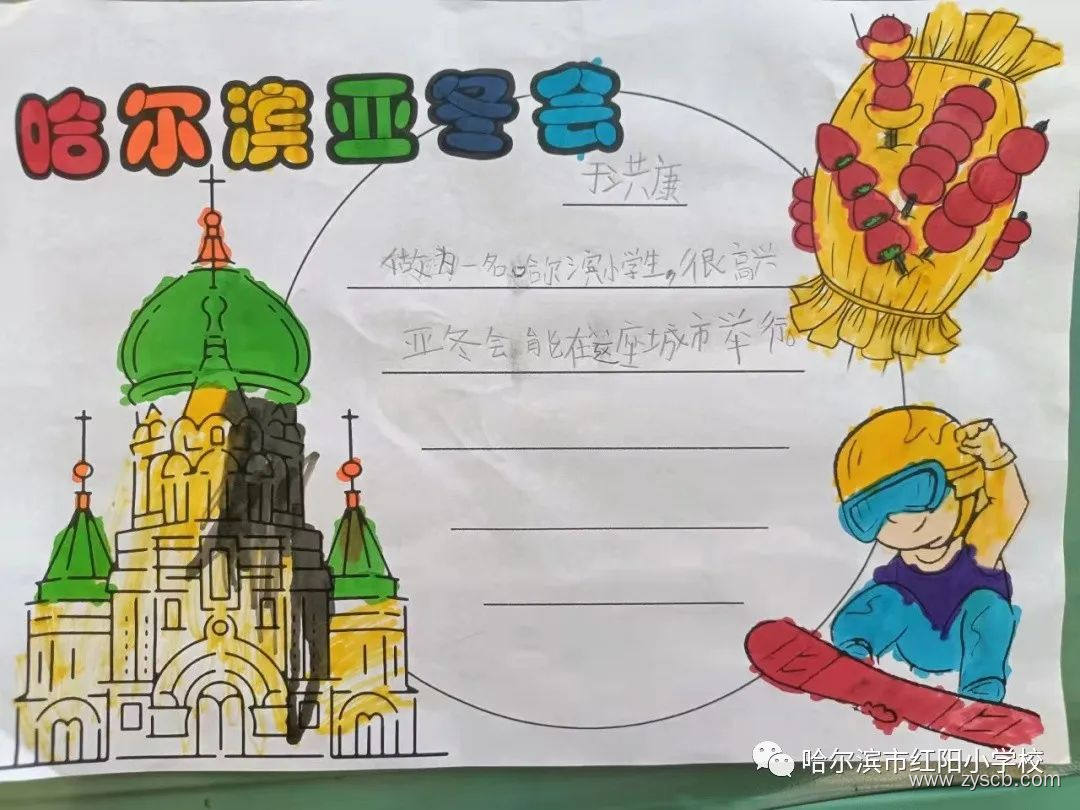 哈尔滨亚冬会
于洪康
做为一名哈尔滨小学生,很高兴
亚冬会能在这座城市举行。
哈尔滨市红阳小学校
www.zyscb.com